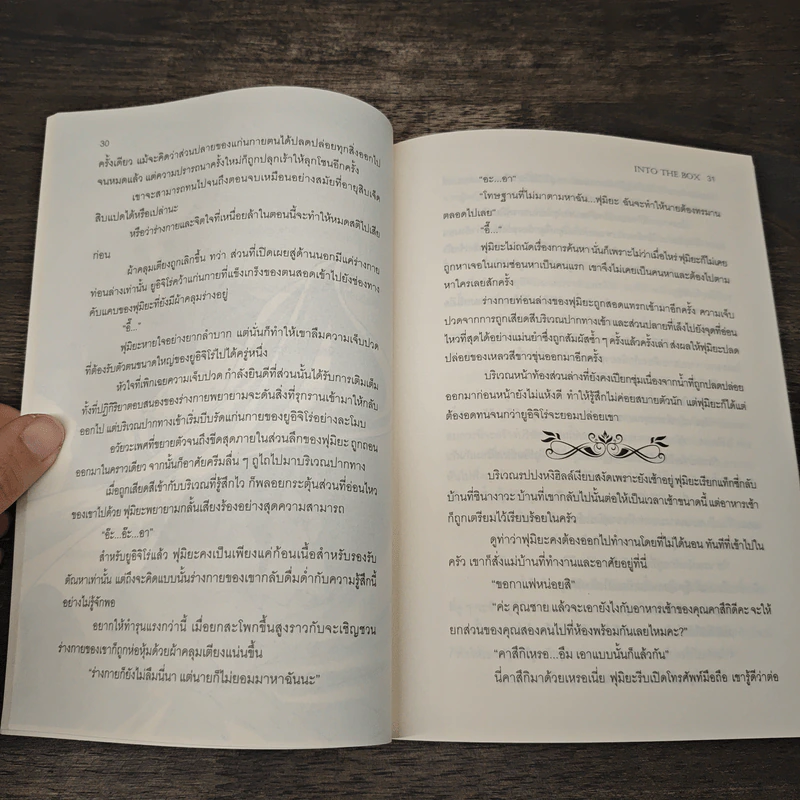 30
ครั้งเดียว แม้จะคิดว่าส่วนปลายของแก่นกายตนได้ปลดปล่อยทุกสิ่งออกไป
จนหมดแล้ว แต่ความปรารถนาครั้งใหม่ก็ถูกปลุกเร้าให้ลุกโชนอีกครั้ง
เขาจะสามารถทนไปจนถึงตอนจบเหมือนอย่างสมัยที่อายุสิบเจ็ด
สิบแปดได้หรือเปล่านะ
หรือว่าร่างกายและจิตใจที่เหนื่อยล้าในตอนนี้จะทำให้หมดสติไปเสีย
ก่อน
ผ้าคลุมเตียงถูกเลิกขึ้น ทว่า ส่วนที่เปิดเผยสู่ด้านนอกมีแค่ร่างกาย
ท่อนล่างเท่านั้น ยูอิจิโร่คว้าแก่นกายที่แข็งเกร็งของตนสอดเข้าไปยังช่องทาง
คับแคบของฟุมิยะที่ยังมีผ้าคลุมร่างอยู่
“อื๊...”
ฟุมิยะหายใจอย่างยากลำบาก แต่นั่นก็ทำให้เขาลืมความเจ็บปวด
ที่ต้องรับตัวตนขนาดใหญ่ของยูอิจิโร่ไปได้ครู่หนึ่ง
หัวใจที่เพิกเฉยความเจ็บปวด กำลังยินดีที่ส่วนนั้นได้รับการเติมเต็ม
ทั้งที่ปฏิกิริยาตอบสนองของร่างกายพยายามจะดันสิ่งที่รุกรานเข้ามาให้กลับ
ออกไป แต่บริเวณปากทางเข้าเริ่มบีบรัดแก่นกายของยูอิจิโร่อย่างละโมบ
อวัยวะเพศที่ขยายตัวจนถึงขีดสุดภายในส่วนลึกของฟุมิยะ ถูกถอน
ออกมาในคราวเดียว จากนั้นก็อาศัยครีมลื่น ๆ ถูไถไปมาบริเวณปากทาง
เมื่อถูกเสียดสีเข้ากับบริเวณที่รู้สึกไว ก็พลอยกระตุ้นส่วนที่อ่อนไหว
ของเขาไปด้วย ฟุมิยะพยายามกลั้นเสียงร้องอย่างสุดความสามารถ
“อ๊ะ...อ๊ะ...อา”
สำหรับยูอิจิโร่แล้ว ฟุมิยะคงเป็นเพียงแค่ก้อนเนื้อสำหรับรองรับ
ตัณหาเท่านั้น แต่ถึงจะคิดแบบนั้นร่างกายของเขากลับดื่มด่ำกับความรู้สึกนี้
อย่างไม่รู้จักพอ
อยากให้ทำรุนแรงกว่านี้ เมื่อยกสะโพกขึ้นสูงราวกับจะเชิญชวน
ร่างกายของเขาก็ถูกห่อหุ้มด้วยผ้าคลุมเตียงแน่นขึ้น
“ร่างกายก็ยังไม่ลืมนี่นา แต่นายก็ไม่ยอมมาหาฉันนะ”
INTO THE BOX 31
“อะ...อา”
“โทษฐานที่ไม่มาตามหาฉัน...ฟุมิยะ ฉันจะทำให้นายต้องทรมาน
ตลอดไปเลย”
“อื๊...”
ฟุมิยะไม่ถนัดเรื่องการค้นหา นั่นก็เพราะไม่ว่าเมื่อไหร่ ฟุมิยะก็ไม่เคย
ถูกหาเจอในเกมซ่อนหาเป็นคนแรก เขาจึงไม่เคยเป็นคนหาและต้องไปตาม
หาใครเลยสักครั้ง
ร่างกายท่อนล่างของฟุมิยะถูกสอดแทรกเข้ามาอีกครั้ง ความเจ็บ
ปวดจากการถูกเสียดสีบริเวณปากทางเข้า และส่วนปลายที่เล็งไปยังจุดที่อ่อน
ไหวที่สุดได้อย่างแม่นยำซึ่งถูกสัมผัสซ้ำ ๆ ครั้งแล้วครั้งเล่า ส่งผลให้ฟุมิยะปลด
ปล่อยของเหลวสีขาวขุ่นออกมาอีกครั้ง
บริเวณหน้าท้องส่วนล่างที่ยังคงเปียกชุ่มเนื่องจากน้ำที่ถูกปลดปล่อย
ออกมาก่อนหน้ายังไม่แห้งดี ทำให้รู้สึกไม่ค่อยสบายตัวนัก แต่ฟุมิยะก็ได้แต่
ต้องอดทนจนกว่ายูอิจิโร่จะยอมปล่อยเขา
บริเวณรปปงหงิฮิลล์เงียบสงัดเพราะยังเช้าอยู่ ฟุมิยะเรียกแท็กซี่กลับ
บ้านที่ชินางาวะ บ้านที่เขากลับไปนั้นต่อให้เป็นเวลาเช้าขนาดนี้ แต่อาหารเช้า
ก็ถูกเตรียมไว้เรียบร้อยในครัว
ดูท่าว่าฟุมิยะคงต้องออกไปทำงานโดยที่ไม่ได้นอน ทันทีที่เข้าไปใน
ครัว เขาก็สั่งแม่บ้านที่ทำงานและอาศัยอยู่ที่นี่
“ขอกาแฟหน่อยสิ”
“ค่ะ คุณชาย แล้วจะเอายังไงกับอาหารเช้าของคุณคาสึกิดีคะ จะให้
ยกส่วนของคุณสองคนไปที่ห้องพร้อมกันเลยไหมคะ?”
“คาสึกิเหรอ...อืม เอาแบบนั้นก็แล้วกัน”
นี่คาสึกิมาด้วยเหรอเนี่ย ฟุมิยะรีบเปิดโทรศัพท์มือถือ เขารู้ดีว่าต่อ